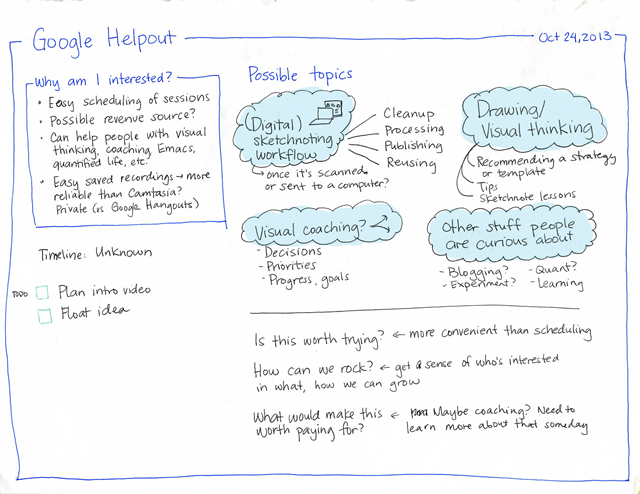 Google Helpout
Oct 24, 2013
Why am I interested?
• Easy scheduling of sessions
• Possible revenue source?
• Can help people with visual
thinking, coaching, Emacs,
quantified life, etc.
• Easy saved recordings → more
reliable than Camtasia?
Private (vs Google Hangouts)
Timeline: Unknown
TODO
Plan intro video
Float idea
Possible topics
(Digital)
sketchnoting
workflow
Cleanup
Processing
Publishing
Reusing
once it's scanned
or sent to a computer?
Drawing/
Visual thinking
Recommending a strategy
or template
Tips
Sketchnote lessons
Visual coaching?
- Decisions
- Priorities
- Progress, goals
Other stuff people
are curious about
- Blogging? - Quant?
- Experiment? - Learning
Is this worth trying? ← more convenient than scheduling
How can we rock? ← get a sense of who's interested
in what, how we can grow
What would make this ← Maybe coaching? Need to
worth paying for? learn more about that someday